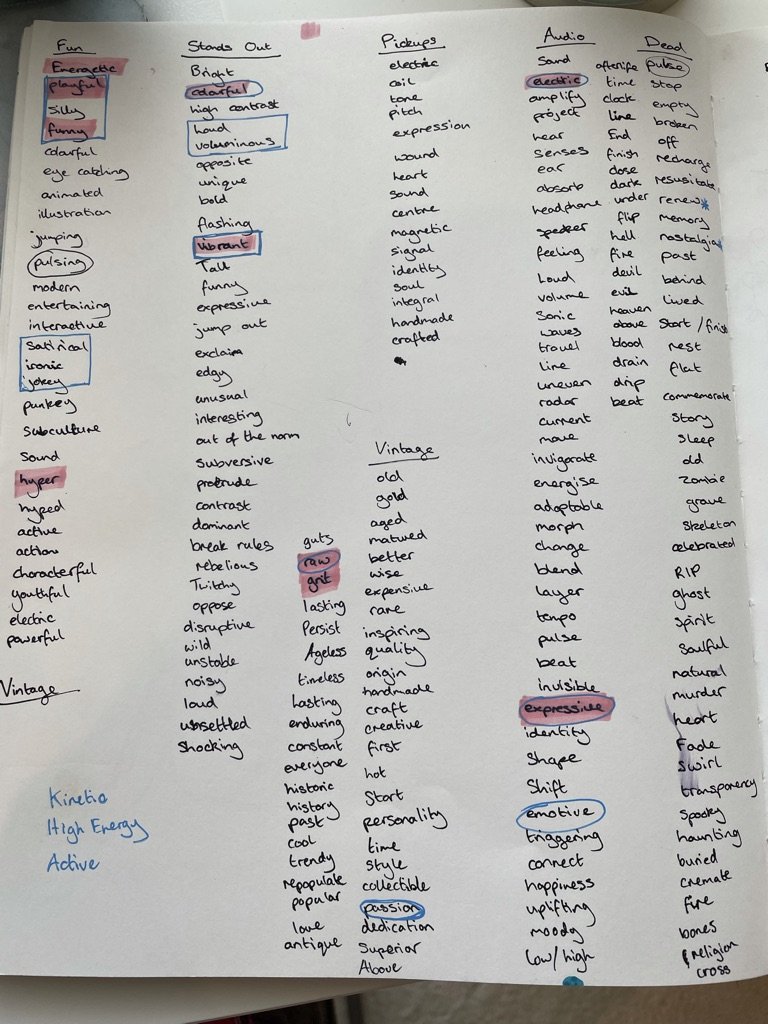 Fun
Energetic
playful
silly
funny
colourful
eye catching
animated
illustration
jumping
pulsing
modern
entertaining
interactive
Satirical
ironic
jokey
punkey
subculture
Sound
hyper
hyped
active
action
characterful
youthful
electric
powerful
Vintage
Kinetic
High Energy
Active
Stands Out
Bright
colourful
high contrast
loud
voluminous
opposite
unique
bold
flashing
vibrant
Tall
funny
expressive
jump out
exclaim
edgy
unusual
interesting
out of the norm
subversive
protrude
contrast
dominant
break rules
rebelious
Twitchy
oppose
disruptive
wild
unstable
noisy
loud
unsettled
shocking
Pickups
electric
coil
tone
pitch
expression
wound
heart
sound
centre
magnetic
signal
identity
soul
integral
handmade
crafted
Vintage
old
gold
aged
matured
better
wise
expensive
rare
inspiring
quality
origin
handmade
craft
creative
first
hot
Start
personality
time
style
collectible
passion
dedication
Superior
Above
guts
raw
grit
lasting
Persist
Ageless
timeless
Lasting
enduring
constant
everyone
historic
history
past
cool
trendy
repopulate
popular
love
antique
Audio
Sound
electric
amplify
project
hear
senses
ear
absorb
headphone
speaker
feeling
Loud
volume
Sonic
waves
travel
Line
uneven
radar
current
move
invigorate
energise
adaptable
morph
change
blend
Layer
tempo
pulse
beat
invisible
expressive
identity
Shape
Shift
emotive
triggering
connect
happiness
uplifting
moody
Low/high
Dead
afterlife
time
clock
line
End
finish
close
dark
under
flip
hell
fire
devil
evil
heaven
above
blood
drain
drip
beat
pulse
stop
empty
broken
off
recharge
resusitate
renew*
memory
nostalgia
past
behind
Lived
Start / finish
rest
flat
commemorate
Story
Sleep
old
Zombie
grave
Skeleton
celebrated
RIP
ghost
spirit
Soulful
natural
murder
heart
Fade
Swirl
transparency
Spooky
haunting
buried
cremate
fire
bones
religion
cross